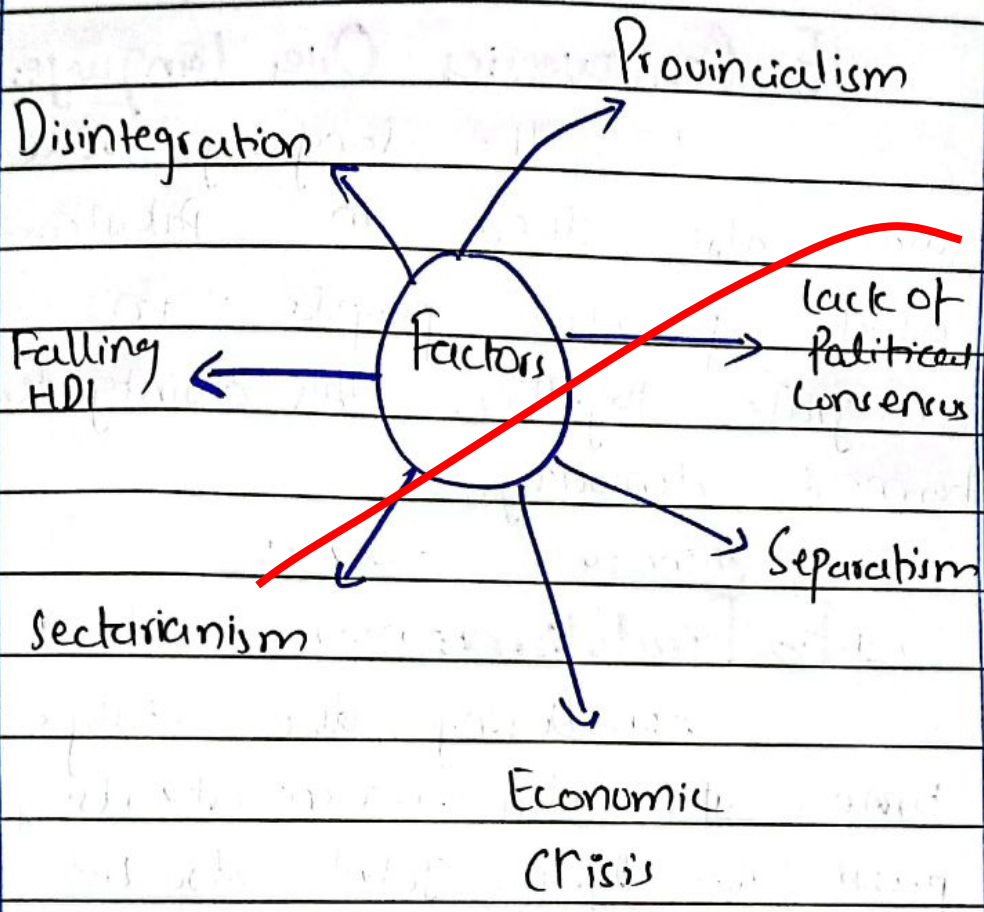 Provincialism
Disintegration
Factors
Lack of
Political
Consensus
Falling
HDI
Separatism
Sectarianism
Economic
Crisis